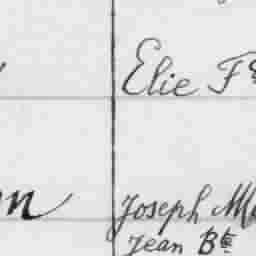 Elie Fs
Joseph
Jean Bte